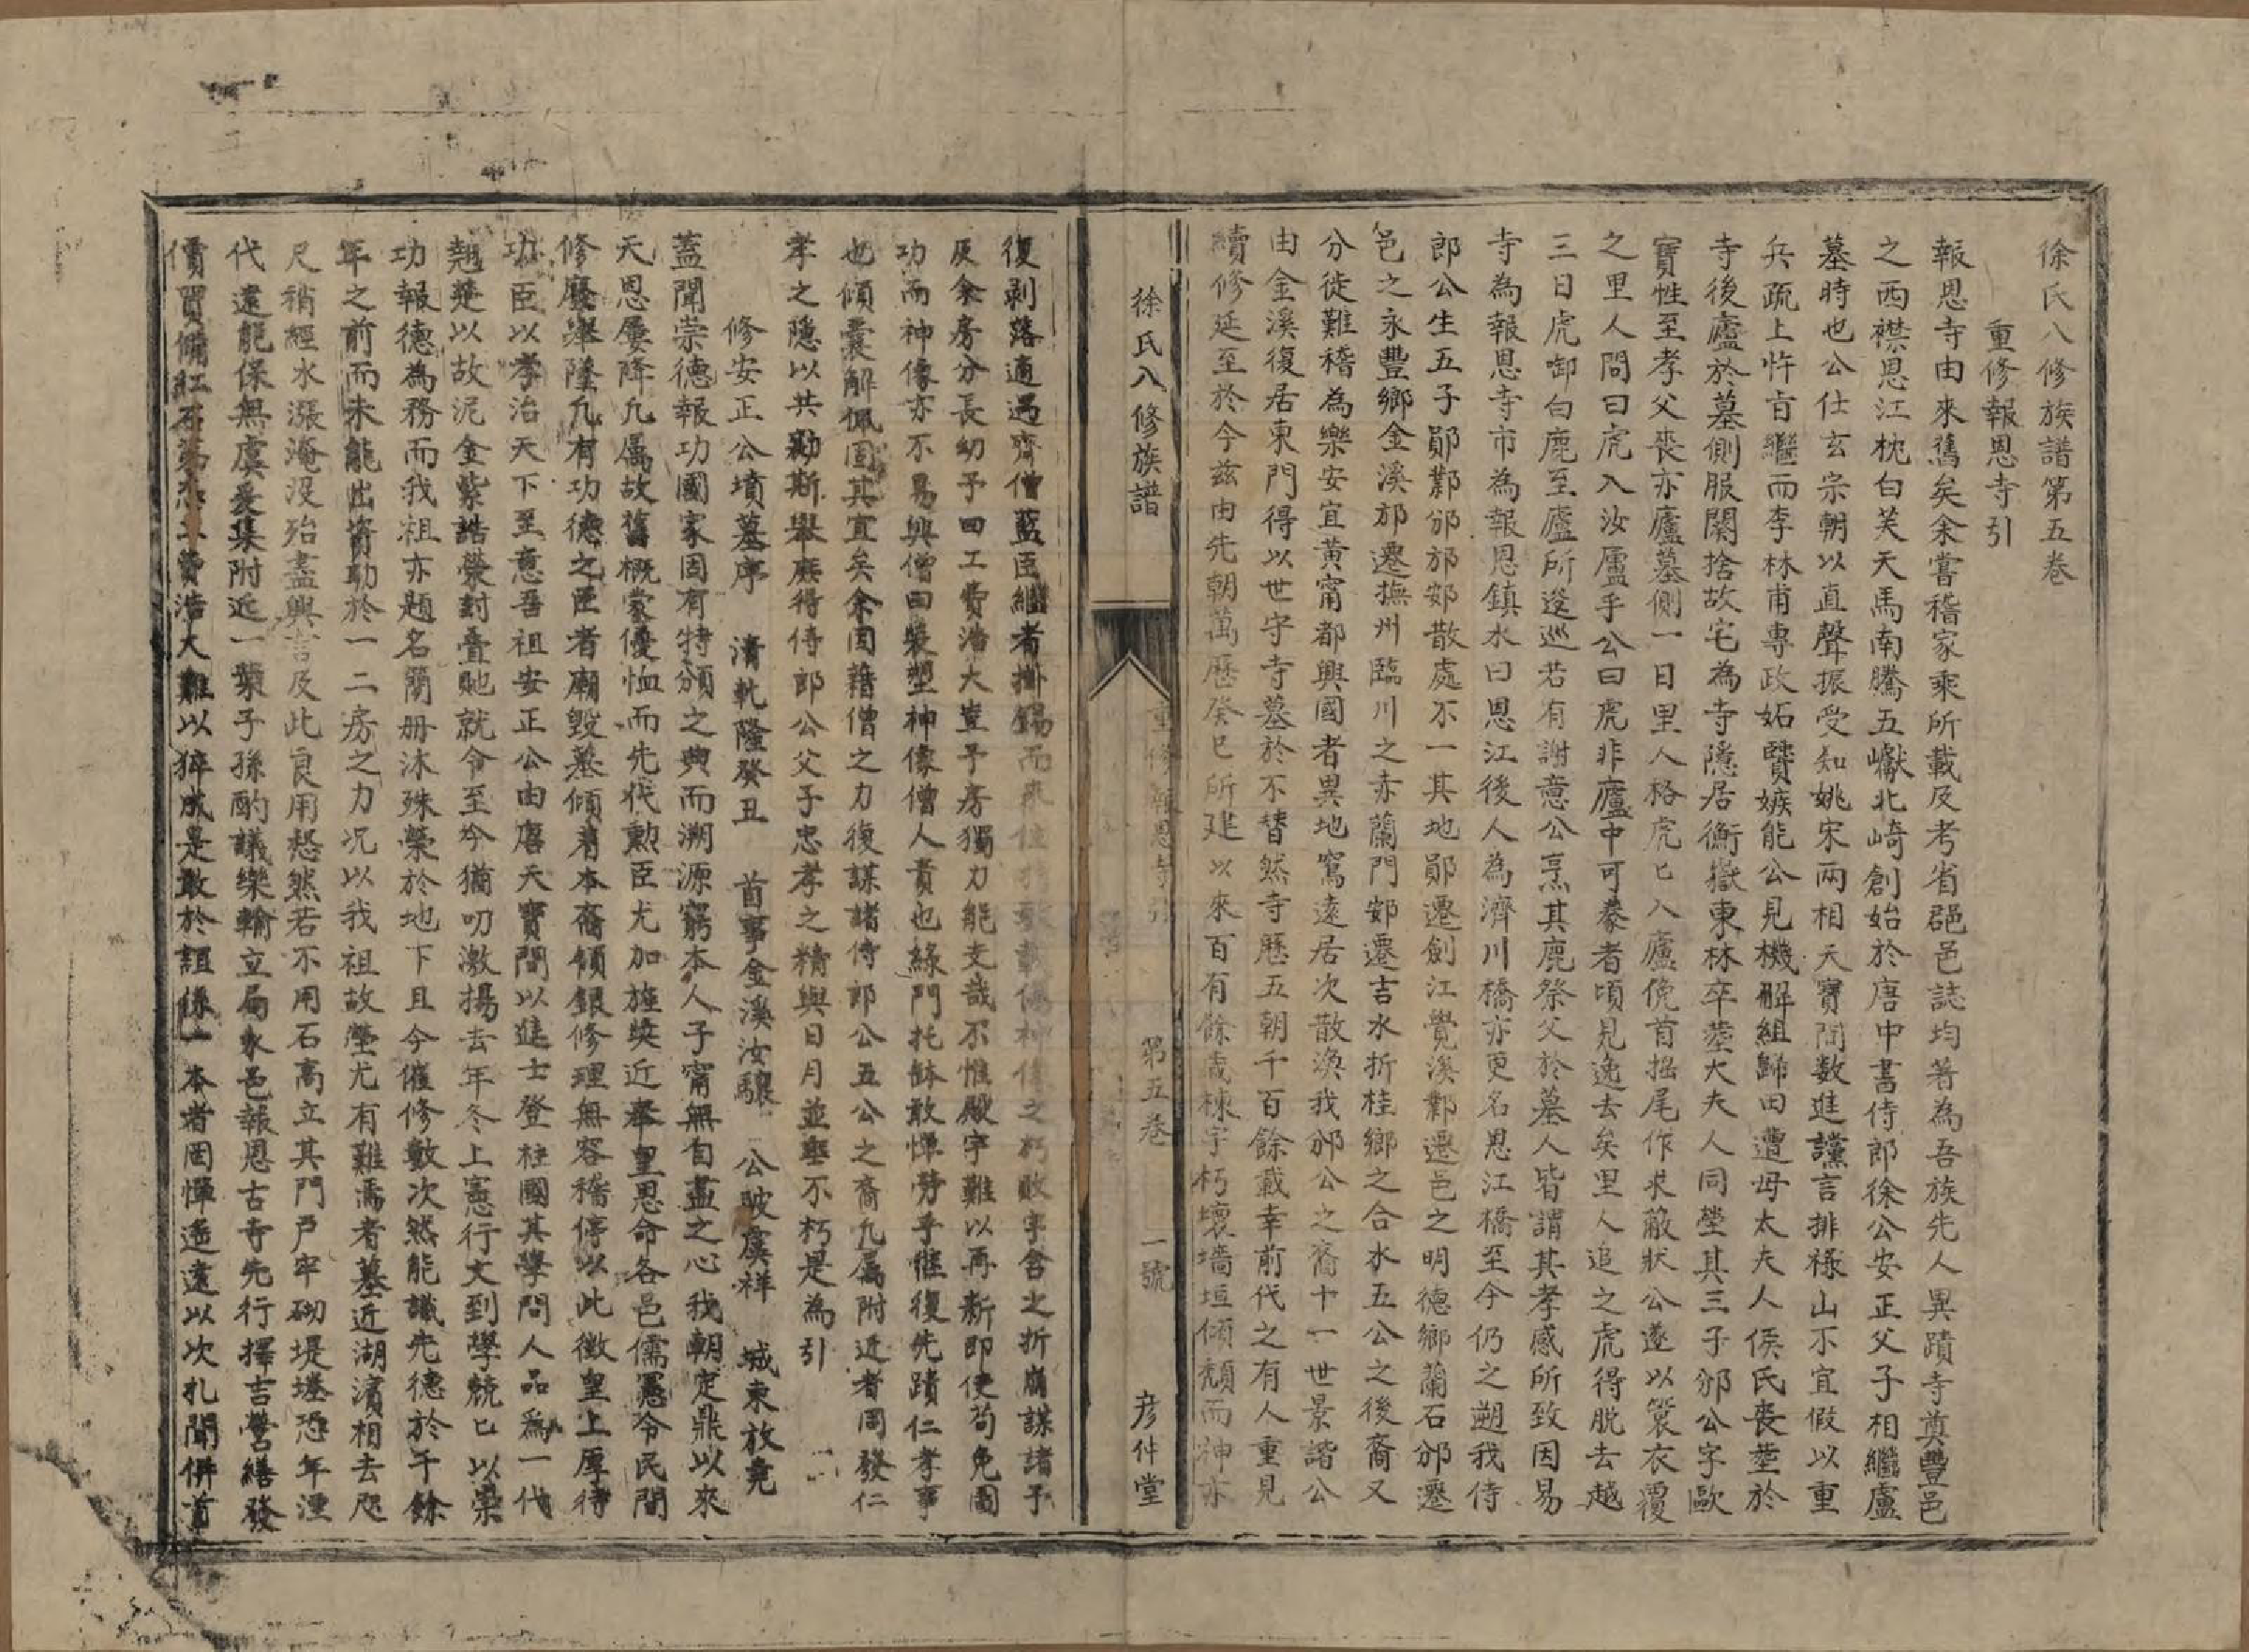 徐氏八修族譜第五卷
重修報恩寺引
報恩寺由來舊矣余嘗稽家乘所載及考省郡邑誌均著為吾族先人異蹟寺奠豐邑
之西襟恩江枕白芙天馬南騰五巘北崎創始於唐中書侍郎徐公安正父子相繼廬
墓時也公仕玄宗朝以直聲振受知姚宋兩相天寶間數進讜言排祿山不宜假以重
兵疏上忤旨繼而李林甫專政妬賢嫉能公見機解組歸田遭母太夫人侯氏喪塟於
寺後廬於墓側服闋捨故宅為寺隱居衡嶽東林卒塟大夫人同塋其三子邠公字歐
寶性至孝父喪亦廬墓側一日里人格虎匕入廬俛首搖尾作求蔽狀公遂以簑衣覆
之里人問曰虎入汝廬乎公曰虎非廬中可豢者頃見逸去矣里人追之虎得脫去越
三日虎啣白鹿至廬所逡巡若有謝意公烹其鹿祭父於墓人皆謂其孝感所致因易
寺為報恩寺市為報恩鎮水曰恩江後人為濟川橋亦更名恩江橋至今仍之遡我侍
郎公生五子鄖鄴邠邡郟散處不一其地鄖遷劍江覺溪鄴遷邑之明德鄉蘭石邠遷
邑之永豐鄉金溪邡遷撫州臨川之赤蘭門郟遷吉水折桂鄉之合水五公之後裔又
分徙難稽為樂安宜黃甯都興國者異地窵遠居次散渙我邠公之裔十一世景諧公
由金溪復居東門得以世守寺墓於不替然寺歷五朝千百餘載幸前代之有人重見
續修延至於今茲由先朝萬歷癸巳所建以來百有餘歲棟宇朽壞墻垣傾頹而神亦
徐氏八修族譜 重修報恩寺引 第五卷 一號 彦仲堂
復剥落適遇齊僧藍臣繼者掛錫而來住持歎載傷神像之朽敗宇舍之折崩謀諸予
及余房分長幼予曰工費浩大豈予房獨力能支哉不惟殿宇難以再新即使苟免圖
功而神像亦不易興僧曰裝塑神像僧人責也緣門托缽敢憚勞乎惟復先蹟仁孝事
也傾囊解佩固其宜矣余因藉僧之力復謀諸侍郎公五公之裔凡属附近者同發仁
孝之隱以共勷斯舉庶得侍郎公父子忠孝之精與日月並壑不朽是為引
修安正公墳墓序 清乾隆癸丑 首事金溪汝驤 公陂虞祥 城東放堯
蓋聞崇德報功國家固有特頒之典而溯源窮本人子甯無自盡之心我朝定鼎以來
天恩屢降凡属故舊概蒙優恤而先代勲臣尤加旌奬近奉皇恩命各邑儒冕令民間
修廢舉隆凡有功德之臣者廟毀墓傾着本裔傾銀修理無容稽停以此徵皇上厚待
功臣以孝治天下至意吾祖安正公由唐天寶間以進士登柱國其學問人品為一代
翹楚以故泥金紫誥榮封疊貤就令至今猶叨激揚去年冬上憲行文到學兢匕以崇
功報德為務而我祖亦題名簡册沐殊榮於地下且今催修數次然能讖先德於千餘
年之前而未能出資助於一二房之力况以我祖故塋尤有難焉者墓近湖濱相去咫
尺稍經水漲淹没殆盡興言及此良用愁然若不用石高立其門戶牢砌堤墶恐年湮
代遠能保無虞爰集附近一葉子孫酌議樂輸立局永邑報恩古寺先行擇吉營繕發
價買備紅石第恐工費浩大難以猝成是敢於誼係一本者因憚遥遠以次扎聞併首